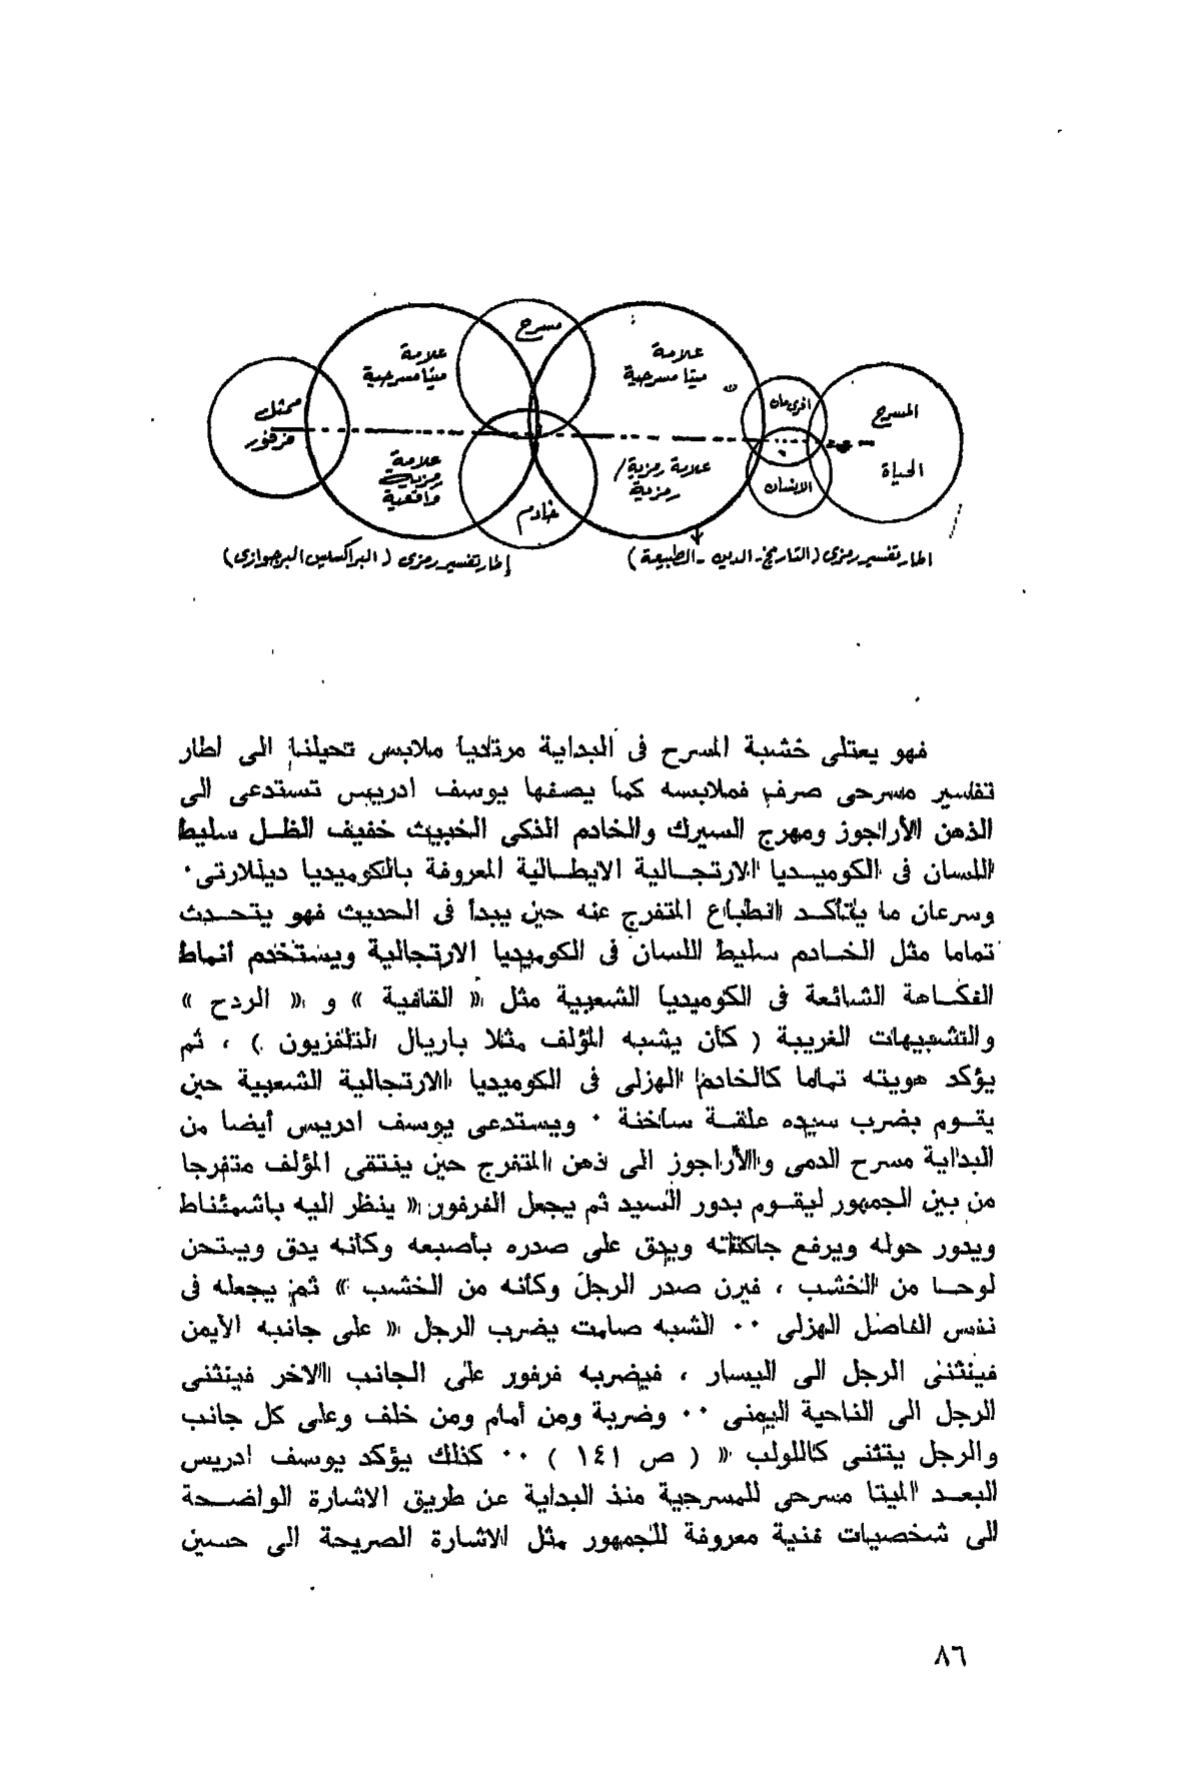 مسرح
علامة
ميتا مسرحية
علامة
ميتا مسرحية
المسرح
ممثل
فرفور
علامة رمزية /
رمزية
علامة
رمزية
واقعية
الحياة
الانسان
خادم
اطار تفسير رمزى (التاريخ - الدين - الطبيعة)
إطار تفسير رمزى (البراكسيس البرجوازى)
فهو يعتلى خشبة المسرح فى البداية مرتديا ملابس تحيلنا الى اطار
تفسير مسرحى صرف فملابسه كما يصفها يوسف ادريس تستدعى الى
الذهن الأراجوز ومهرج السيرك والخادم الذكى الخبيث خفيف الظل سليط
اللسان فى الكوميديا الارتجالية الايطالية المعروفة بالكوميديا ديللارتى ٠
وسرعان ما يتأكد انطباع المتفرج عنه حين يبدأ فى الحديث فهو يتحدث
تماما مثل الخادم سليط اللسان فى الكوميديا الارتجالية ويستخدم أنماط
الفكاهة الشائعة فى الكوميديا الشعبية مثل « القافية » و « الردح »
والتشبيهات الغريبة ( كأن يشبه المؤلف مثلا باريال التلفزيون ) ، ثم
يؤكد هويته تماما كالخادم الهزلى فى الكوميديا الارتجالية الشعبية حين
يقوم بضرب سيده علقة ساخنة ٠ ويستدعى يوسف ادريس أيضا من
البداية مسرح الدمى والأراجوز الى ذهن المتفرج حين ينتقى المؤلف متفرجا
من بين الجمهور ليقوم بدور السيد ثم يجعل الفرفور « ينظر اليه باشمئناط
ويدور حوله ويرفع جاكتته ويدق على صدره بأصبعه وكأنه يدق ويمتحن
لوحا من الخشب ، فيرن صدر الرجل وكأنه من الخشب » ثم يجعله فى
نفس الفاصل الهزلى ٠٠ الشبه صامت يضرب الرجل « على جانبه الأيمن
فينثنى الرجل الى اليسار ، فيضربه فرفور على الجانب الاخر فينثنى
الرجل الى الناحية اليمنى ٠٠ وضربة ومن أمام ومن خلف وعلى كل جانب
والرجل يتثنى كاللولب « ( ص ١٤١ ) ٠٠ كذلك يؤكد يوسف ادريس
البعد الميتا مسرحى للمسرحية منذ البداية عن طريق الاشارة الواضحة
الى شخصيات فنية معروفة للجمهور مثل الاشارة الصريحة الى حسين
٨٦